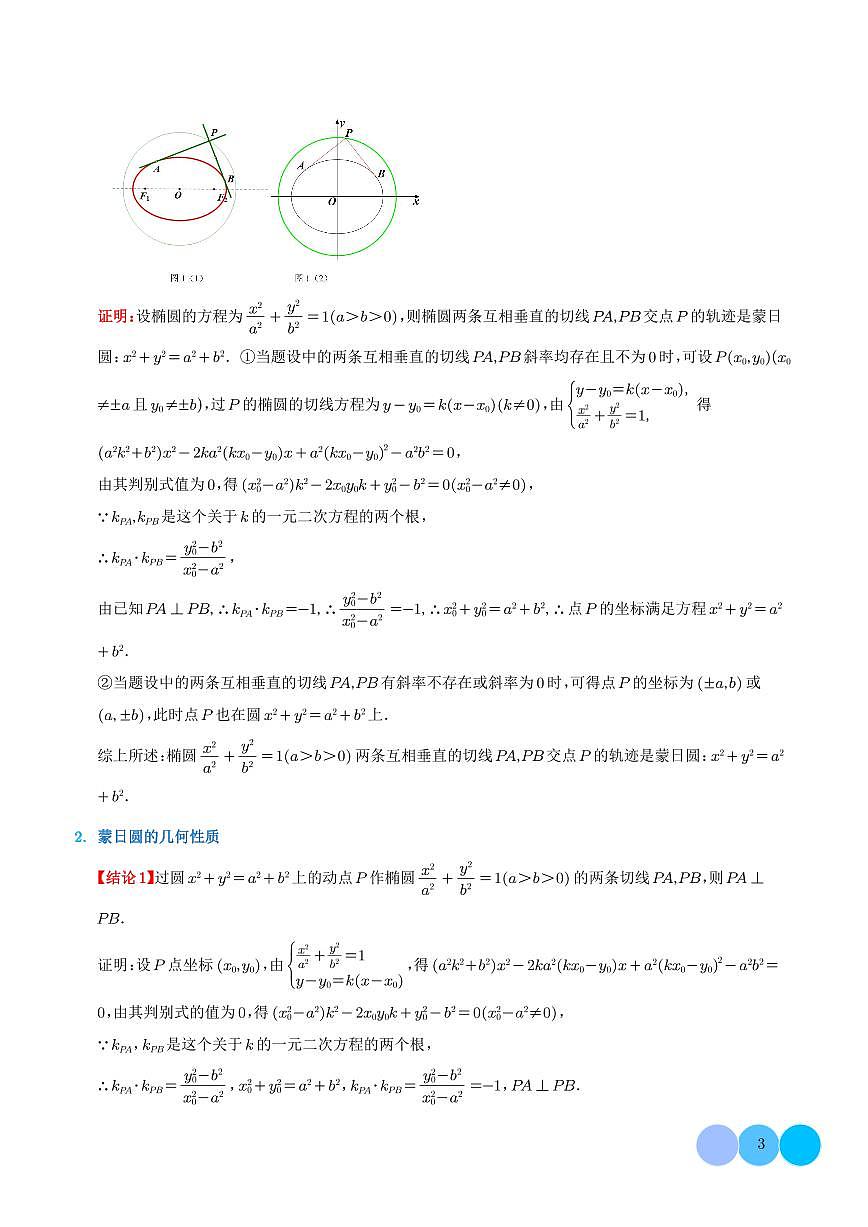 P
A
B
F₁
O
F₂
y
P
A
B
O
x
图1(1) 图1(2)
证明:设椭圆的方程为 x²/a² + y²/b² =1(a>b>0),则椭圆两条互相垂直的切线PA,PB交点P的轨迹是蒙日
圆:x²+y²=a²+b². ①当题设中的两条互相垂直的切线PA,PB斜率均存在且不为0时,可设P(x₀,y₀)(x₀
≠±a且y₀≠±b),过P的椭圆的切线方程为y-y₀=k(x-x₀)(k≠0),由{y-y₀=k(x-x₀), x²/a²+y²/b²=1, 得
(a²k²+b²)x²-2ka²(kx₀-y₀)x+a²(kx₀-y₀)²-a²b²=0,
由其判别式值为0,得(x₀²-a²)k²-2x₀y₀k+y₀²-b²=0(x₀²-a²≠0),
∵k_PA,k_PB是这个关于k的一元二次方程的两个根,
∴k_PA·k_PB=(y₀²-b²)/(x₀²-a²),
由已知PA⊥PB,∴k_PA·k_PB=-1,∴(y₀²-b²)/(x₀²-a²)=-1,∴x₀²+y₀²=a²+b²,∴点P的坐标满足方程x²+y²=a²
+b².
②当题设中的两条互相垂直的切线PA,PB有斜率不存在或斜率为0时,可得点P的坐标为(±a,b)或
(a,±b),此时点P也在圆x²+y²=a²+b²上.
综上所述:椭圆 x²/a² + y²/b² =1(a>b>0)两条互相垂直的切线PA,PB交点P的轨迹是蒙日圆:x²+y²=a²
+b².
2. 蒙日圆的几何性质
【结论1】过圆x²+y²=a²+b²上的动点P作椭圆 x²/a² + y²/b² =1(a>b>0)的两条切线PA,PB,则PA⊥
PB.
证明:设P点坐标(x₀,y₀),由{x²/a²+y²/b²=1 y-y₀=k(x-x₀),得(a²k²+b²)x²-2ka²(kx₀-y₀)x+a²(kx₀-y₀)²-a²b²=
0,由其判别式的值为0,得(x₀²-a²)k²-2x₀y₀k+y₀²-b²=0(x₀²-a²≠0),
∵k_PA,k_PB是这个关于k的一元二次方程的两个根,
∴k_PA·k_PB=(y₀²-b²)/(x₀²-a²),x₀²+y₀²=a²+b²,k_PA·k_PB=(y₀²-b²)/(x₀²-a²)=-1,PA⊥PB.
3